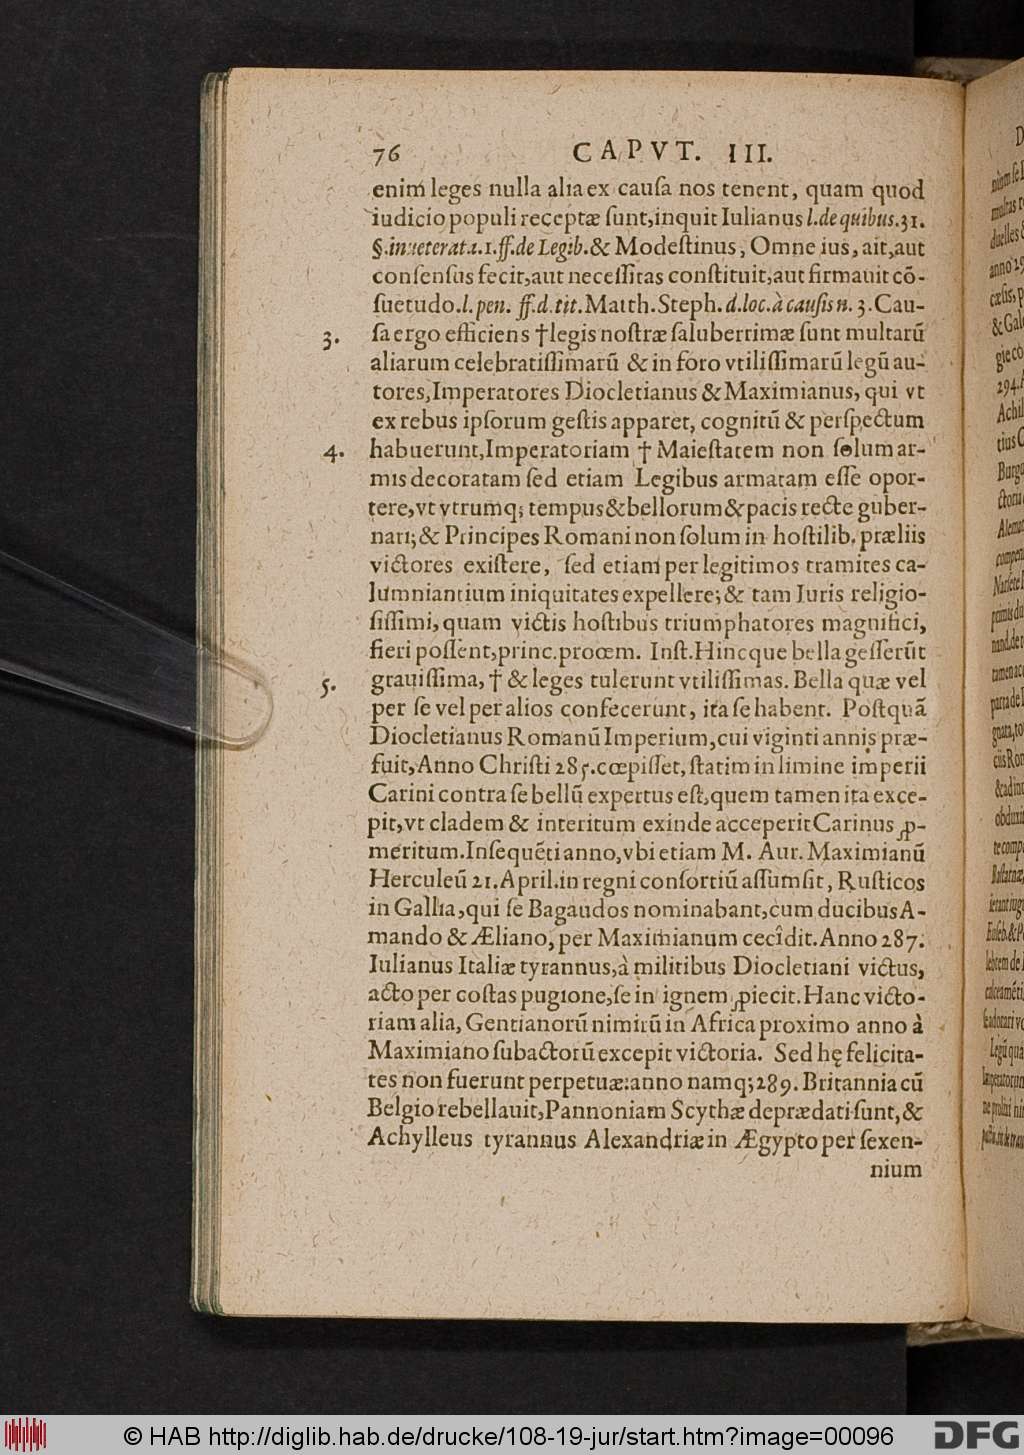 76 CAPVT. III.
enim leges nulla alia ex cauſa nos tenent, quam quod
iudicio populi receptæ ſunt, inquit Iulianus l. de quibus. 31.
§. inueterata. 1. ff. de Legib. & Modeſtinus, Omne ius, ait, aut
conſenſus fecit, aut neceſſitas conſtituit, aut firmauit cō-
ſuetudo. l. pen. ff. d. tit. Matth. Steph. d. loc. à cauſis n. 3. Cau-
3. ſa ergo efficiens † legis noſtræ ſaluberrimæ ſunt multarū
aliarum celebratiſſimarū & in foro vtiliſſimarū legū au-
tores, Imperatores Diocletianus & Maximianus, qui vt
ex rebus ipſorum geſtis apparet, cognitū & perſpectum
4. habuerunt, Imperatoriam † Maieſtatem non ſolum ar-
mis decoratam ſed etiam Legibus armatam eſſe opor-
tere, vt vtrumq; tempus & bellorum & pacis recte guber-
nari; & Principes Romani non ſolum in hoſtilib. præliis
victores exiſtere, ſed etiam per legitimos tramites ca-
lumniantium iniquitates expellere; & tam Juris religio-
ſiſſimi, quam victis hoſtibus triumphatores magnifici,
fieri poſſent, princ. proœm. Inſt. Hincque bella geſſerūt
5. grauiſſima, † & leges tulerunt vtiliſſimas. Bella quæ vel
per ſe vel per alios confecerunt, ita ſe habent. Poſtquā
Diocletianus Romanū Imperium, cui viginti annis præ-
fuit, Anno Chriſti 285. cœpiſſet, ſtatim in limine imperii
Carini contra ſe bellū expertus eſt, quem tamen ita exce-
pit, vt cladem & interitum exinde acceperit Carinus ꝓ-
meritum. Inſequēti anno, vbi etiam M. Aur. Maximianū
Herculeū 21. April. in regni conſortiū aſſumſit, Ruſticos
in Gallia, qui ſe Bagaudos nominabant, cum ducibus A-
mando & Æliano, per Maximianum cecîdit. Anno 287.
Iulianus Italiæ tyrannus, à militibus Diocletiani victus,
acto per coſtas pugione, ſe in ignem ꝓiecit. Hanc victo-
riam alia, Gentianorū nimirū in Africa proximo anno à
Maximiano ſubactorū excepit victoria. Sed hę felicita-
tes non fuerunt perpetuæ: anno namq; 289. Britannia cū
Belgio rebellauit, Pannoniam Scythæ deprædati ſunt, &
Achylleus tyrannus Alexandriæ in Ægypto per ſexen-
nium
© HAB http://diglib.hab.de/drucke/108-19-jur/start.htm?image=00096
DFG